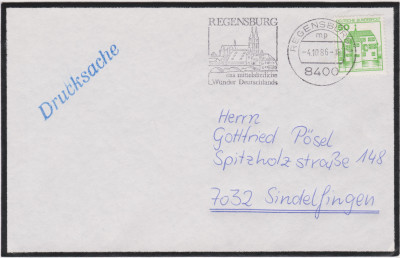 Drucksache
REGENSBURG
das mittelalterliche
Wunder Deutschlands
REGENSBURG
mp
-4.10.86-
8400
50
Herrn
Gottfried Pösel
Spitzholzstraße 148
7032 Sindelfingen